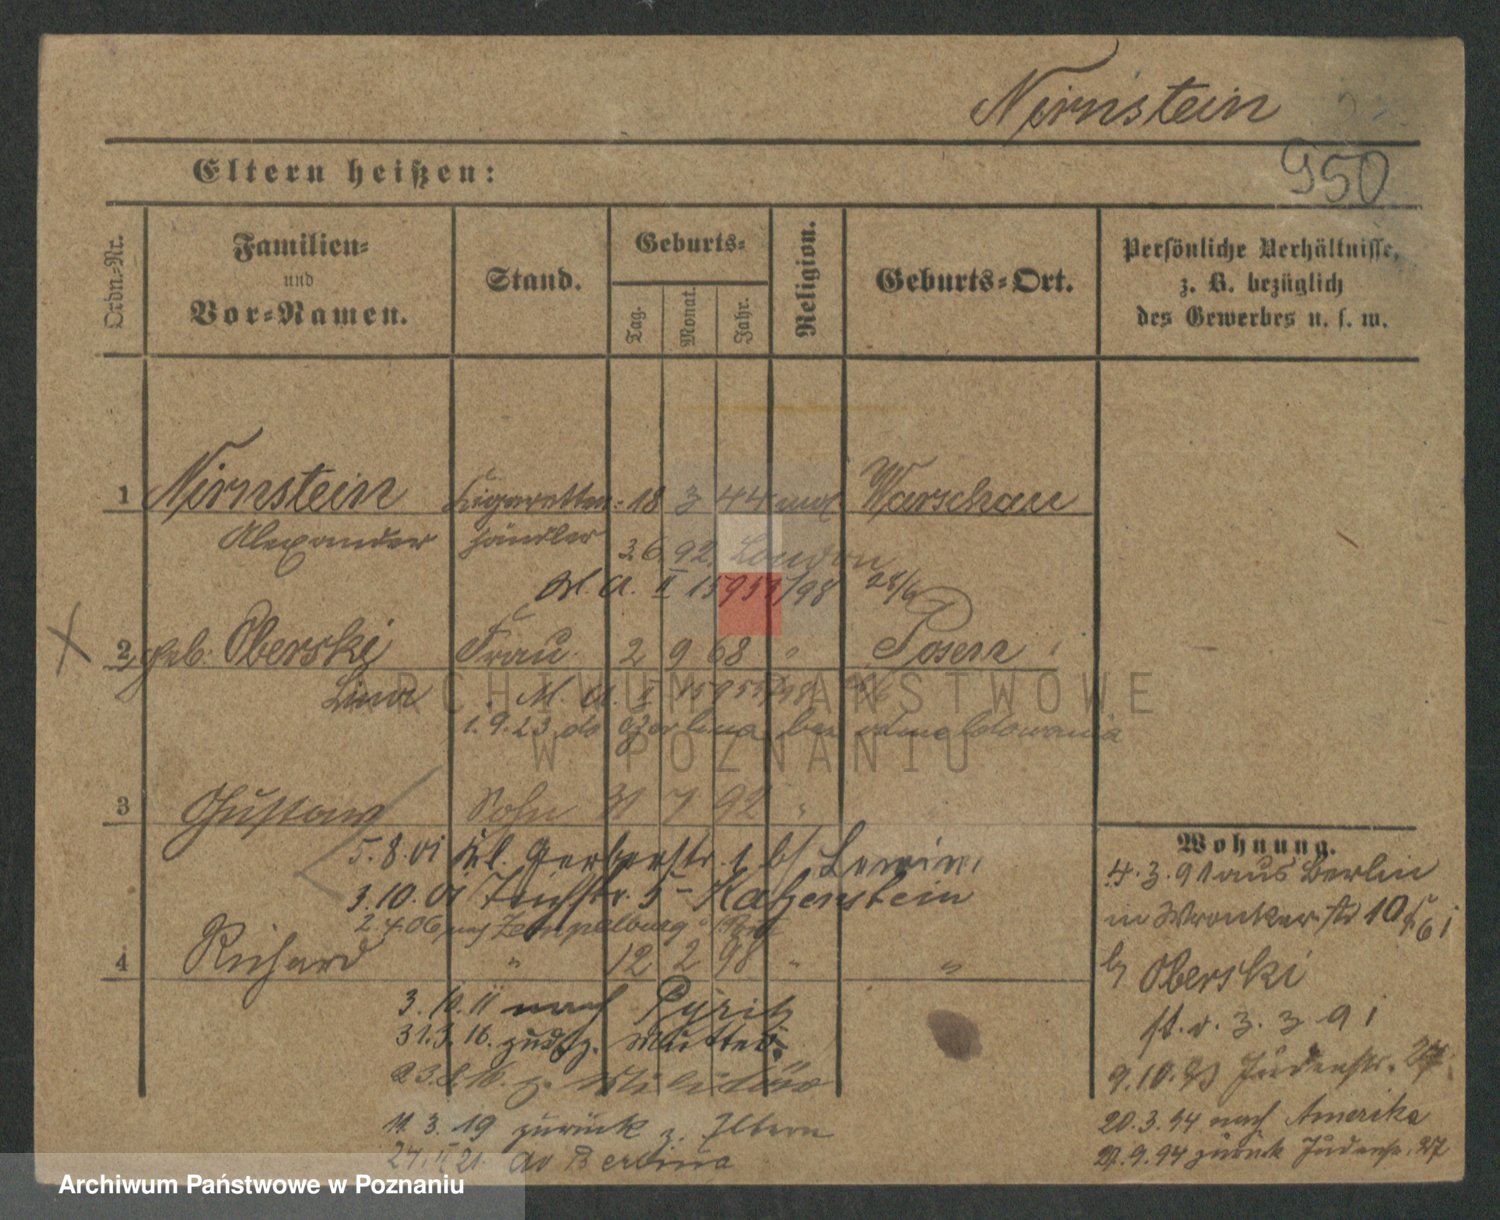 Nirnstein
950
Eltern heißen:
Ordn.-Nr.
Familien-
und
Vor-Namen.
Stand.
Geburts-
Tag.
Monat.
Jahr.
Religion.
Geburts-Ort.
Persönliche Verhältnisse,
z. B. bezüglich
des Gewerbes u. s. w.
1 Nirnstein Cigaretten- 18 3 44 mos Warschau
Alexander händler
26. 92. London
M. A. II 15951/98 28/6
2 geb. Oberski Frau 2 9 68 " Posen
Lina M. A. II 15951/98
1.9.23 do Berlina bez odmeldowania
3 Gustav Sohn 31 7 92 "
5.8.01 Kl. Gerberstr. b/ Lewin
3.10.01 Teichstr. 5 Katzenstein
2.4.06 nach Zempelburg
4 Richard " 12 2 98 " "
3.10.11 nach Pyritz
31.3.16. zur Mutter
z. Militär
11.3.19 zurück z. Eltern
24.II 21. do Berlina
Wohnung.
4.3.91 aus Berlin
in Wronker str 10
b/ Oberski
3.3.91
9.10.93 Judenstr. 27
20.3.94 nach Amerika
27.9.94 zurück Judenstr. 27
ARCHIWUM PAŃSTWOWE
W POZNANIU
Archiwum Państwowe w Poznaniu